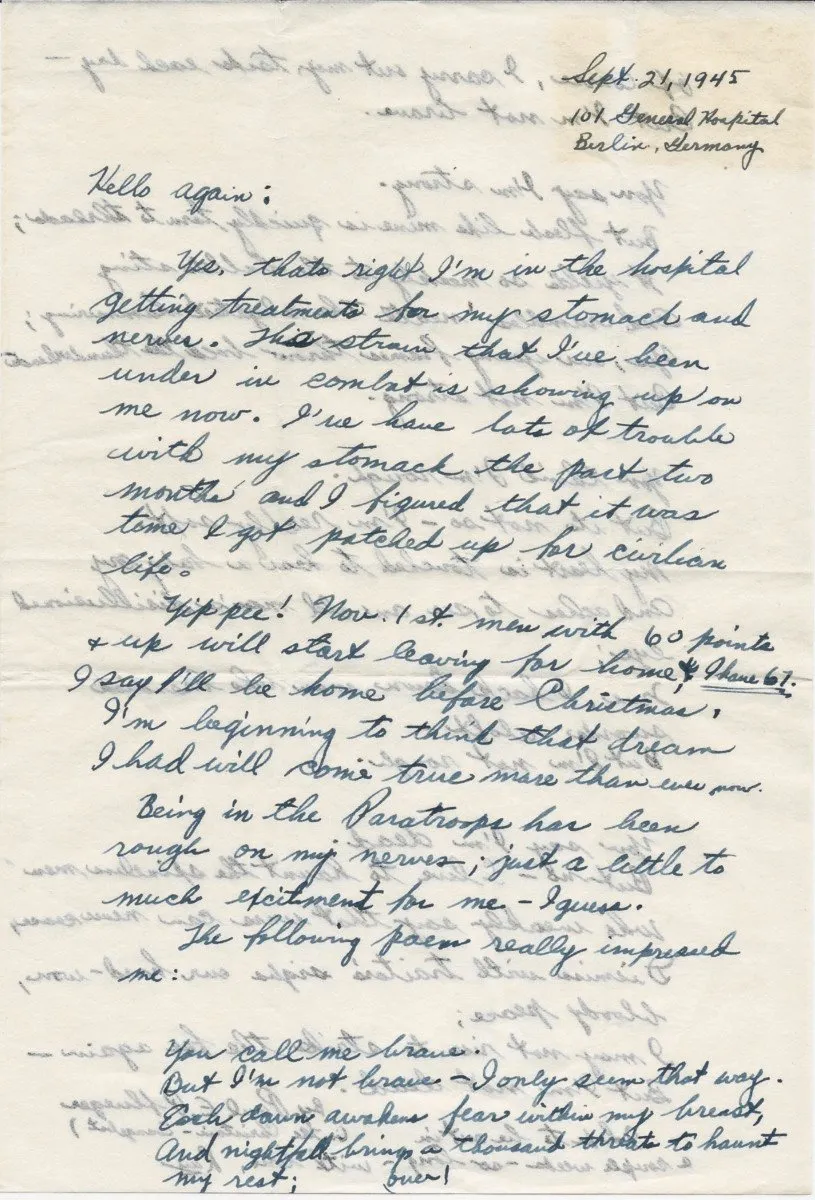 Sept. 21, 1945
101 General Hospital
Berlin, Germany
Hello again:
Yes, thats right I'm in the hospital
getting treatments for my stomach and
nerves. This strain that I've been
under in combat is showing up on
me now. I've have lots of trouble
with my stomack the past two
months and I figured that it was
time I got patched up for civilian
life.
Yippee! Nov. 1st. men with 60 points
& up will start leaving for home & I have 67.
I say I'll be home before Christmas.
I'm beginning to think that dream
I had will come true more than ever now.
Being in the Paratroops has been
rough on my nerves; just a little to
much excitment for me - I guess.
The following poem really impressed
me:
You call me brave.
But I'm not brave - I only seem that way.
Each dawn awakens fear within my breast,
And nightfall brings a thousand threats to haunt
my rest; (over)